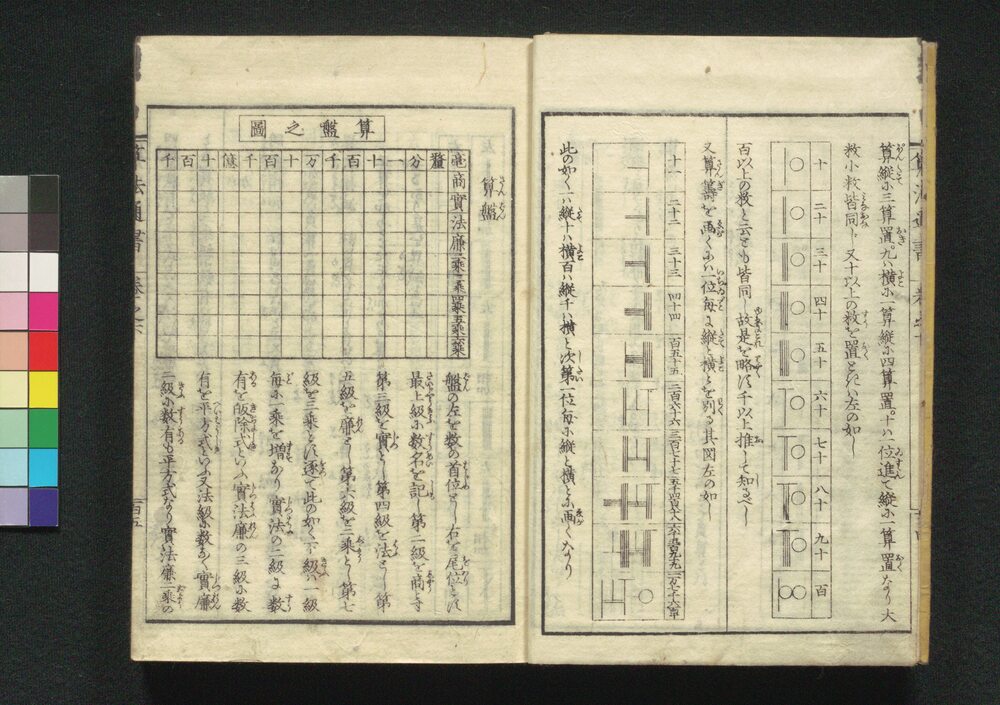 算縦に三算置。九ハ横に一算縦に四算置。十ハ一位進て縦に一算置なり大
数小数皆同し又十以上の数を置ときハ左の如し
十
二十
三十
四十
五十
六十
七十
八十
九十
百
百以上の数と云とも皆同し故是を略す千以上推して知るべし
又算籌を画くにハ一位毎に縦と横とを別る其図左の如し
十一
二十二
三十三
四十四
百五十五
二百六十六
三百七十七
此の如く一ハ縦十ハ横百ハ縦千ハ横と次第一位毎に縦と横とに画くなり
算法通書
算盤
算盤之圖
千百十億千百十万千百十一分釐毫
商
實
法
廉
三乗
四乗
五乗
六乗
盤の左を数の首位とし右を尾位とす
最上級に数名を記し第二級を商とす
第三級を實とし第四級を法とし第
五級を廉とし第六級を三乗とし第七
級を三乗とす逐て此の如く下級ハ一級
毎に一乗を増なり實法の二級に数
有を皈除式といふ實法廉の三級に数
有を平方式といふ又法級に数なく實廉
二級に数有も平方式なり實法廉三乗の